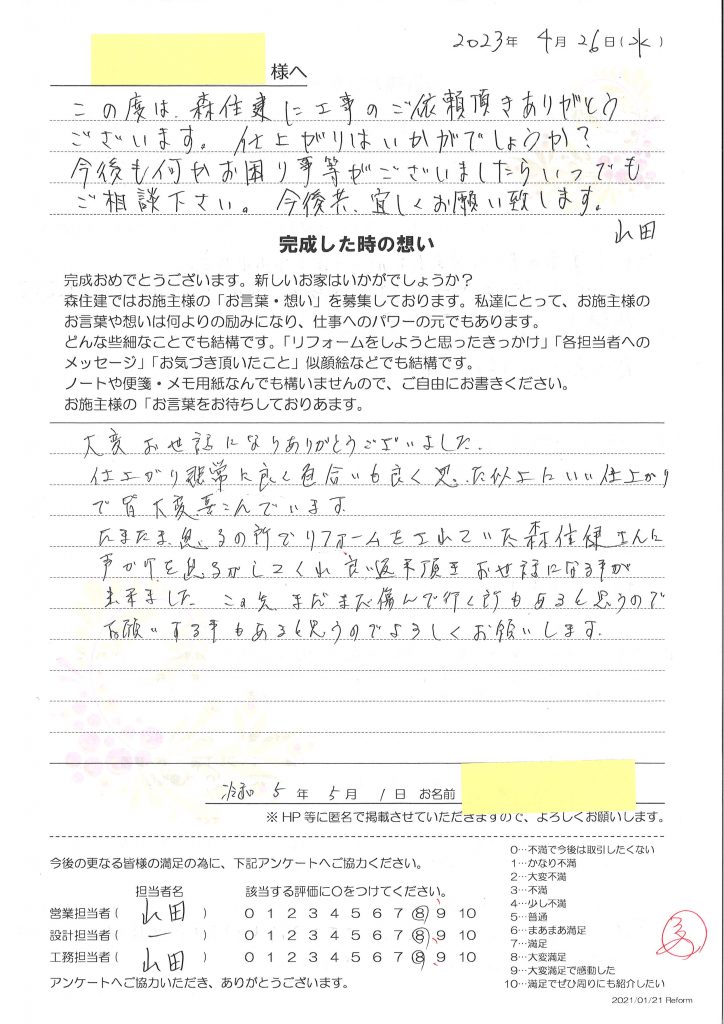 2023年 4月 26日(水)
様へ
この度は、森住建に工事のご依頼頂きありがとう
ございます。仕上がりはいかがでしょうか?
今後も何かお困り事等がございましたらいつでも
ご相談下さい。今後共、宜しくお願い致します。
山田
完成した時の想い
完成おめでとうございます。新しいお家はいかがでしょうか?
森住建ではお施主様の「お言葉・想い」を募集しております。私達にとって、お施主様の
お言葉や想いは何よりの励みになり、仕事へのパワーの元でもあります。
どんな些細なことでも結構です。「リフォームをしようと思ったきっかけ」「各担当者への
メッセージ」「お気づき頂いたこと」似顔絵などでも結構です。
ノートや便箋・メモ用紙なんでも構いませんので、ご自由にお書きください。
お施主様の「お言葉をお待ちしておりあます。
大変お世話になりありがとうございました.
仕上がり非常に良く色合いも良く思った以上にいい仕上がり
で皆大変喜こんでいます.
たまたま の所でリフォームをされていた森住建さんに
声かけを してくれ 良い返不頂き お世話になる事が
出来ました この先 まだまだ傷んで行く所もあると思うので
お願いする事もあると思うのでよろしくお願いします.
令和 5年 5月 1日 お名前
※HP等に匿名で掲載させていただきますので、よろしくお願いします。
今後の更なる皆様の満足の為に、下記アンケートへご協力ください。
担当者名 該当する評価に○をつけてください。
営業担当者( 山田 ) 0 1 2 3 4 5 6 7 8 9 10
設計担当者( ー ) 0 1 2 3 4 5 6 7 8 9 10
工務担当者( 山田 ) 0 1 2 3 4 5 6 7 8 9 10
アンケートへご協力いただき、ありがとうございます。
0…不満で今後は取引したくない
1…かなり不満
2…大変不満
3…不満
4…少し不満
5…普通
6…まあまあ満足
7…満足
8…大変満足
9…大変満足で感動した
10…満足でぜひ周りにも紹介したい
2021/01/21 Reform